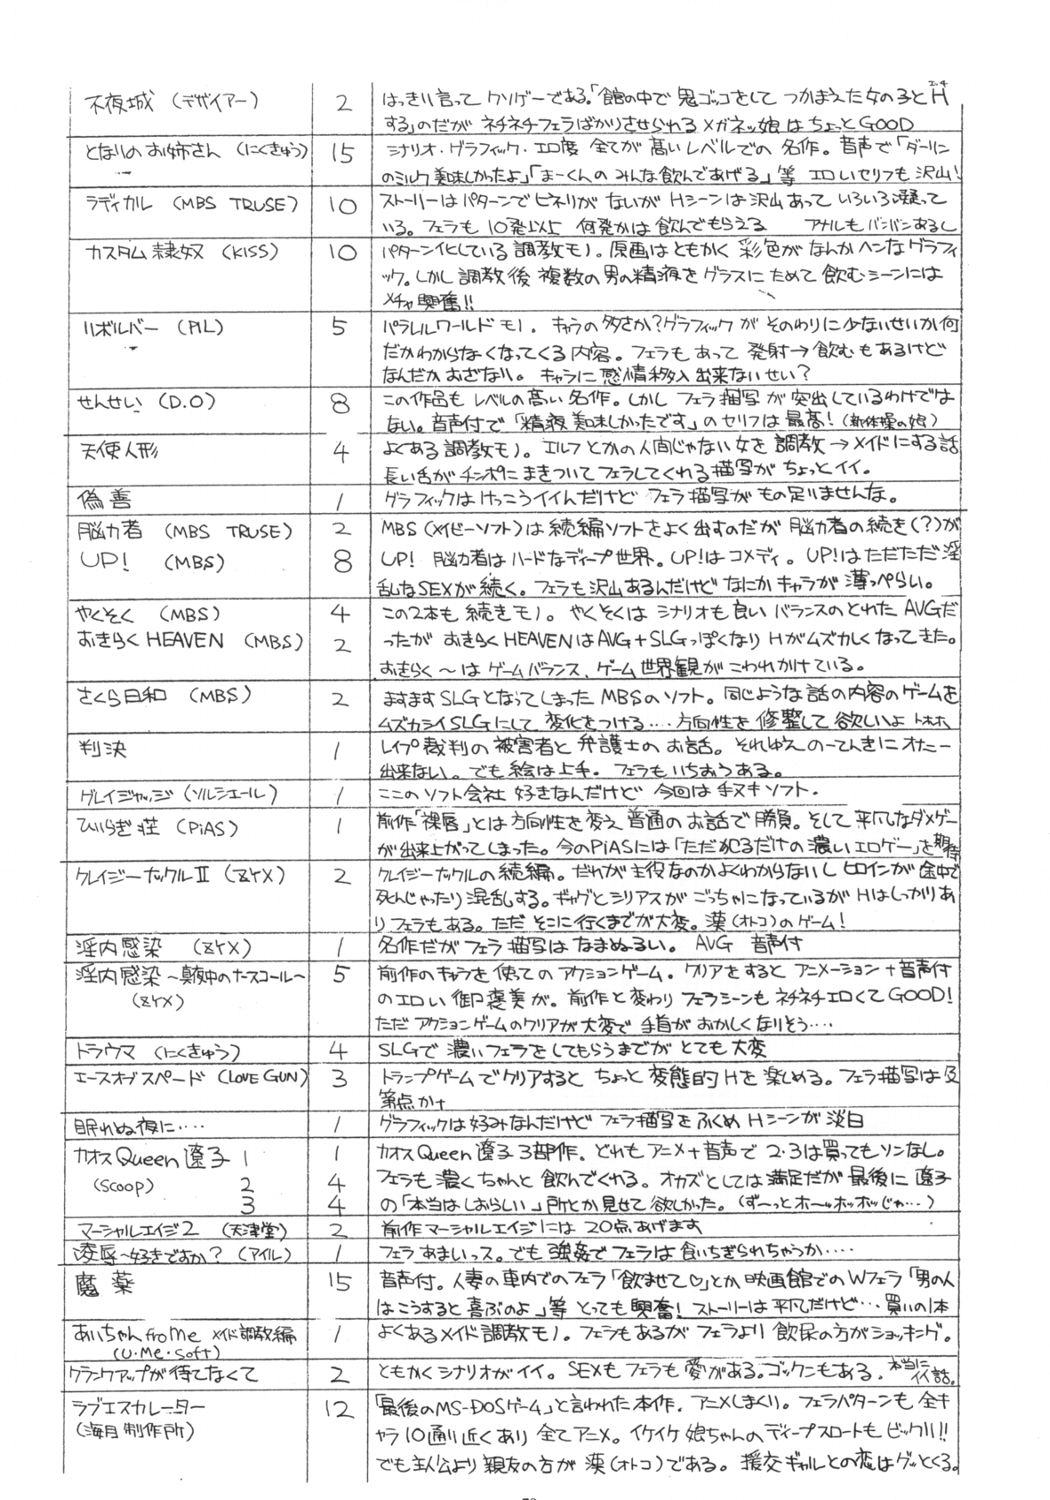 不夜城（デザイアー） 2 はっきり言ってクソゲーである。「館の中で鬼ゴッコをしてつかまえた女の子とH
する」のだがネチネチフェラばかりさせられるメガネッ娘はちょっとGOOD
となりのお姉さん（にくきゅう） 15 シナリオ・グラフィック・エロ度全てが高いレベルでの名作。音声で「ダーリン
のミルク美味しかったよ」「まーくんのみんな飲んであげる」等エロいセリフも沢山!
ラディカル（MBS TRUSE） 10 ストーリーはパターンでヒネリがないがHシーンは沢山あっていろいろ凝って
いる。フェラも10発以上何発かは飲んでもらえる アナルもバンバンあるし
カスタム隷奴（KISS） 10 パターン化している調教モノ。原画はともかく彩色がなんかヘンなグラフィ
ック。しかし調教後複数の男の精液をグラスにためて飲むシーンには
メチャ興奮!!
リボルバー（PIL） 5 パラレルワールドモノ。キャラの多さか?グラフィックがそのわりに少ないせいか何
だかわからなくなってくる内容。フェラもあって発射→飲むもあるけど
なんだかおざなり。キャラに感情移入出来ないせい?
せんせい（D.O） 8 この作品もレベルの高い名作。しかしフェラ描写が突出しているわけでは
ない。音声付で「精液美味しかったです」のセリフは最高!（新体操の娘）
天使人形 4 よくある調教モノ。エルフとかの人間じゃない女を調教→メイドにする話
長い舌がチンポにまきついてフェラしてくれる描写がちょっとイイ。
偽善 1 グラフィックはけっこうイイんだけどフェラ描写がもの足りませんな。
脳力者（MBS TRUSE） 2 MBS（メイビーソフト）は続編ソフトをよく出すのだが脳力者の続き(?)が
UP!（MBS） 8 UP! 脳力者はハードなディープ世界。UP!はコメディ。UP!はただただ淫
乱なSEXが続く。フェラも沢山あるんだけどなにかキャラが薄っぺらい。
やくそく（MBS） 4 この2本も続きモノ。やくそくはシナリオも良いバランスのとれたAVGだ
おきらくHEAVEN（MBS） 2 ったがおきらくHEAVENはAVG+SLGっぽくなりHがムズカしくなってきた。
おきらく〜はゲームバランス、ゲーム世界観がこわれかけている。
さくら日和（MBS） 2 ますますSLGとなってしまったMBSのソフト。同じような話の内容のゲームを
ムズカシイSLGにして変化をつける‥‥方向性を修整して欲しいよトホホ
判決 1 レイプ裁判の被害者と弁護士のお話。それゆえのーてんきにオナニー
出来ない。でも絵は上手。フェラもいちおうある。
グレイジャッジ（ソルシエール） 1 ここのソフト会社好きなんだけど今回は手ヌキソフト。
ひいらぎ荘（PiAS） 1 前作「裸唇」とは方向性を変え普通のお話で勝負。そして平凡なダメゲー
が出来上がってしまった。今のPiASには「ただ犯るだけの濃いエロゲー」を期待
クレイジーナックルⅡ（ZYX） 2 クレイジーナックルの続編。だれが主役なのかよくわからないしヒロインが途中で
死んじゃったり混乱する。ギャグとシリアスがごっちゃになっているがHはしっかりあ
りフェラもある。ただそこに行くまでが大変。漢（オトコ）のゲーム!
淫内感染（ZYX） 1 名作だがフェラ描写はなまぬるい。AVG 音声付
淫内感染〜真夜中のナースコール〜 5 前作のキャラを使ってのアクションゲーム。クリアをするとアニメーション+音声付
（ZYX） のエロい御褒美が。前作と変わりフェラシーンもネチネチエロくてGOOD!
ただアクションゲームのクリアが大変で手首がおかしくなりそう‥‥
トラウマ（にくきゅう） 4 SLGで濃いフェラをしてもらうまでがとても大変
エースオブスペード（LOVE GUN） 3 トランプゲームでクリアするとちょっと変態的Hを楽しめる。フェラ描写は及
第点かナ
眠れぬ夜に‥‥ 1 グラフィックは好みなんだけどフェラ描写をふくめHシーンが淡白
カオスQueen遼子 1 1 カオスQueen遼子3部作。どれもアニメ+音声で2・3は買ってもソンなし。
（SCOOP） 2 4 フェラも濃くちゃんと飲んでくれる。オカズとしては満足だが最後に遼子
3 4 の「本当はしおらしい」所とか見せて欲しかった。（ず〜っとホ〜ッホッホッじゃ‥‥）
マーシャルエイジ2（天津堂） 2 前作マーシャルエイジには20点あげます
凌辱〜好きですか?（アイル） 1 フェラあまいっス。でも強姦でフェラは食いちぎられちゃうか‥‥
魔薬 15 音声付。人妻の車内でのフェラ「飲ませて♡」とか映画館でのWフェラ「男の人
はこうすると喜ぶのよ」等とっても興奮!ストーリーは平凡だけど‥‥買いの1本
あいちゃんfroMe メイド調教編 1 よくあるメイド調教モノ。フェラもあるがフェラより飲尿の方がショッキング。
（U・Me・Soft）
クランクアップが待てなくて 2 ともかくシナリオがイイ。SEXもフェラも愛がある。ゴックンもある。本当にイイ話。
ラブエスカレーター 12 「最後のMS-DOSゲーム」と言われた本作。アニメしまくり。フェラパターンも全キ
（海月製作所） ャラ10通り近くあり全てアニメ。イケイケ娘ちゃんのディープスロートもビックリ!!
でも主人公より親友の方が漢（オトコ）である。援交ギャルとの恋はグッとくる。